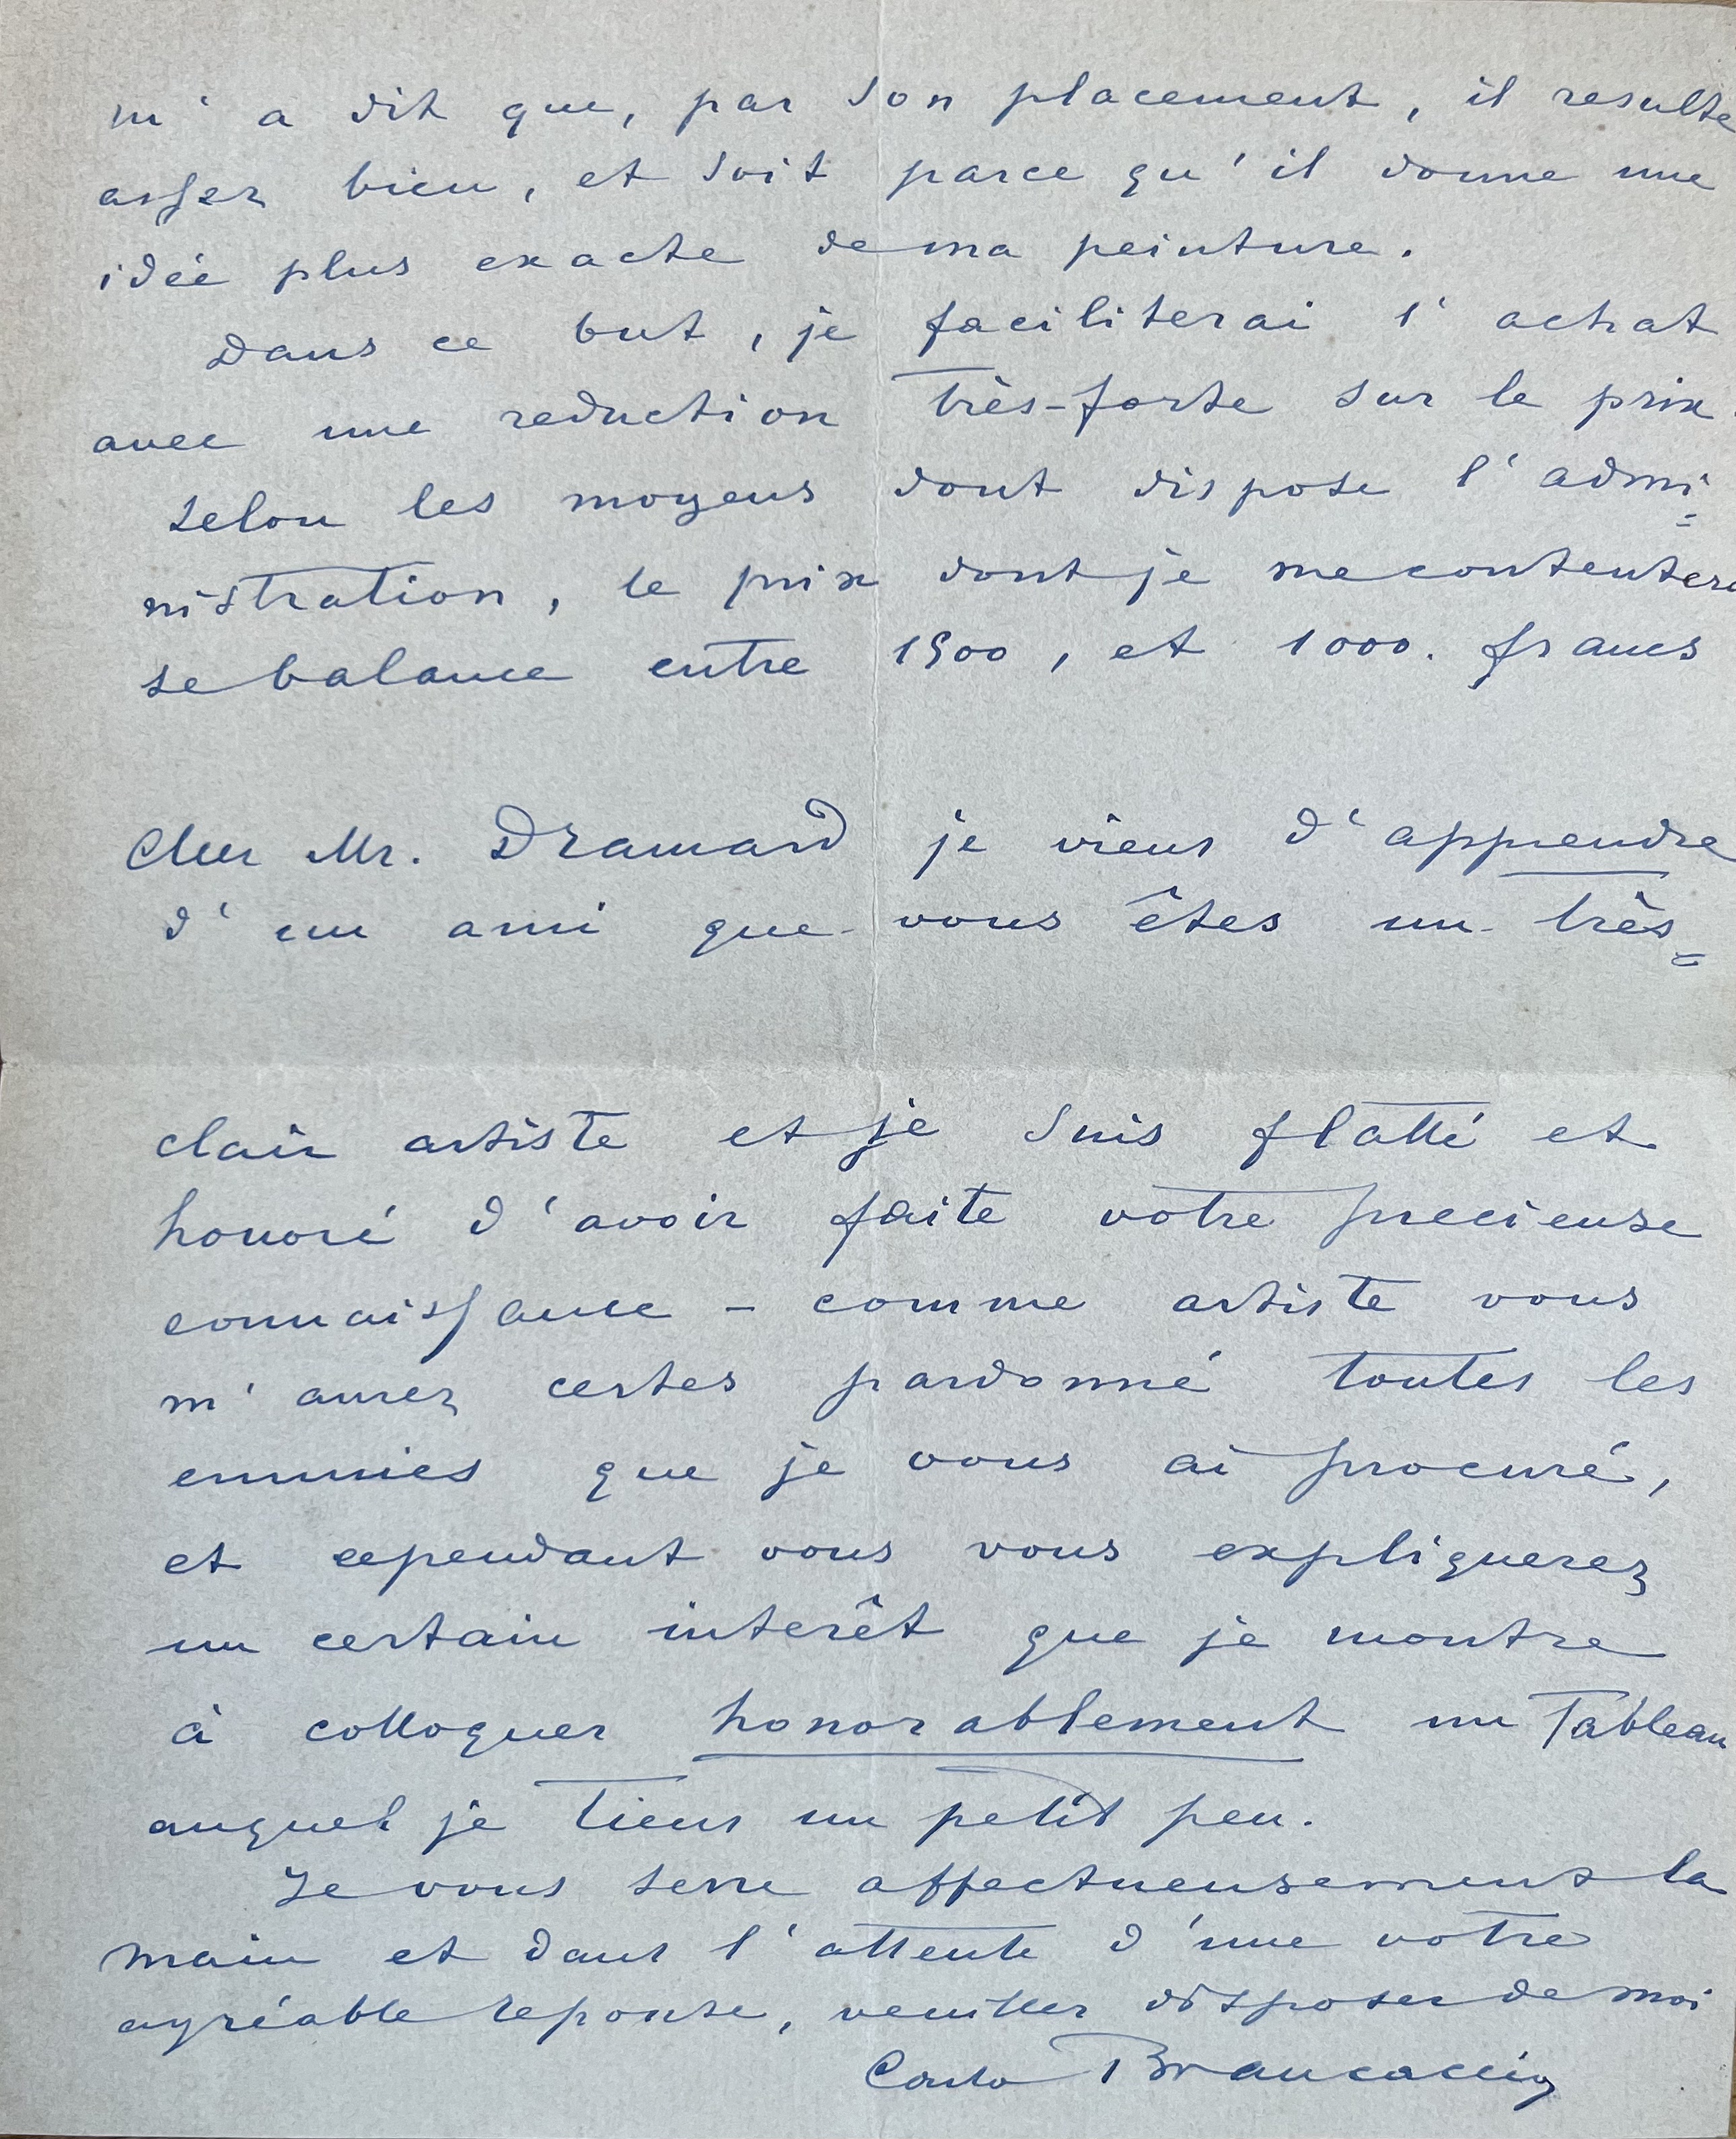 m'a dit que, par son placement, il resulte
assez bien, et soit parce qu'il donne une
idée plus exacte de ma peinture.
Dans ce but, je faciliterai l'achat
avec une reduction très-forte sur le prix
selon les moyens dont dispose l'admi=
nistration, le prix dont je me contenterai
se balance entre 1500, et 1000. francs
Cher Mr. Dramard je viens d'apprendre
d'un ami que vous êtes un très=
clair artiste et je suis flatté et
honoré d'avoir faite votre precieuse
connaissance - comme artiste vous
m'aurez certes pardonné toutes les
ennuies que je vous ai procuré,
et cependant vous vous expliquerez
un certain interêt que je montre
à colloquer honorablement un Tableau
auquel je tiens un petit peu.
Je vous serre affectueusement la
main et dans l'attente d'une votre
agréable reponse, veuillez disposer de moi
Carlo Brancaccio